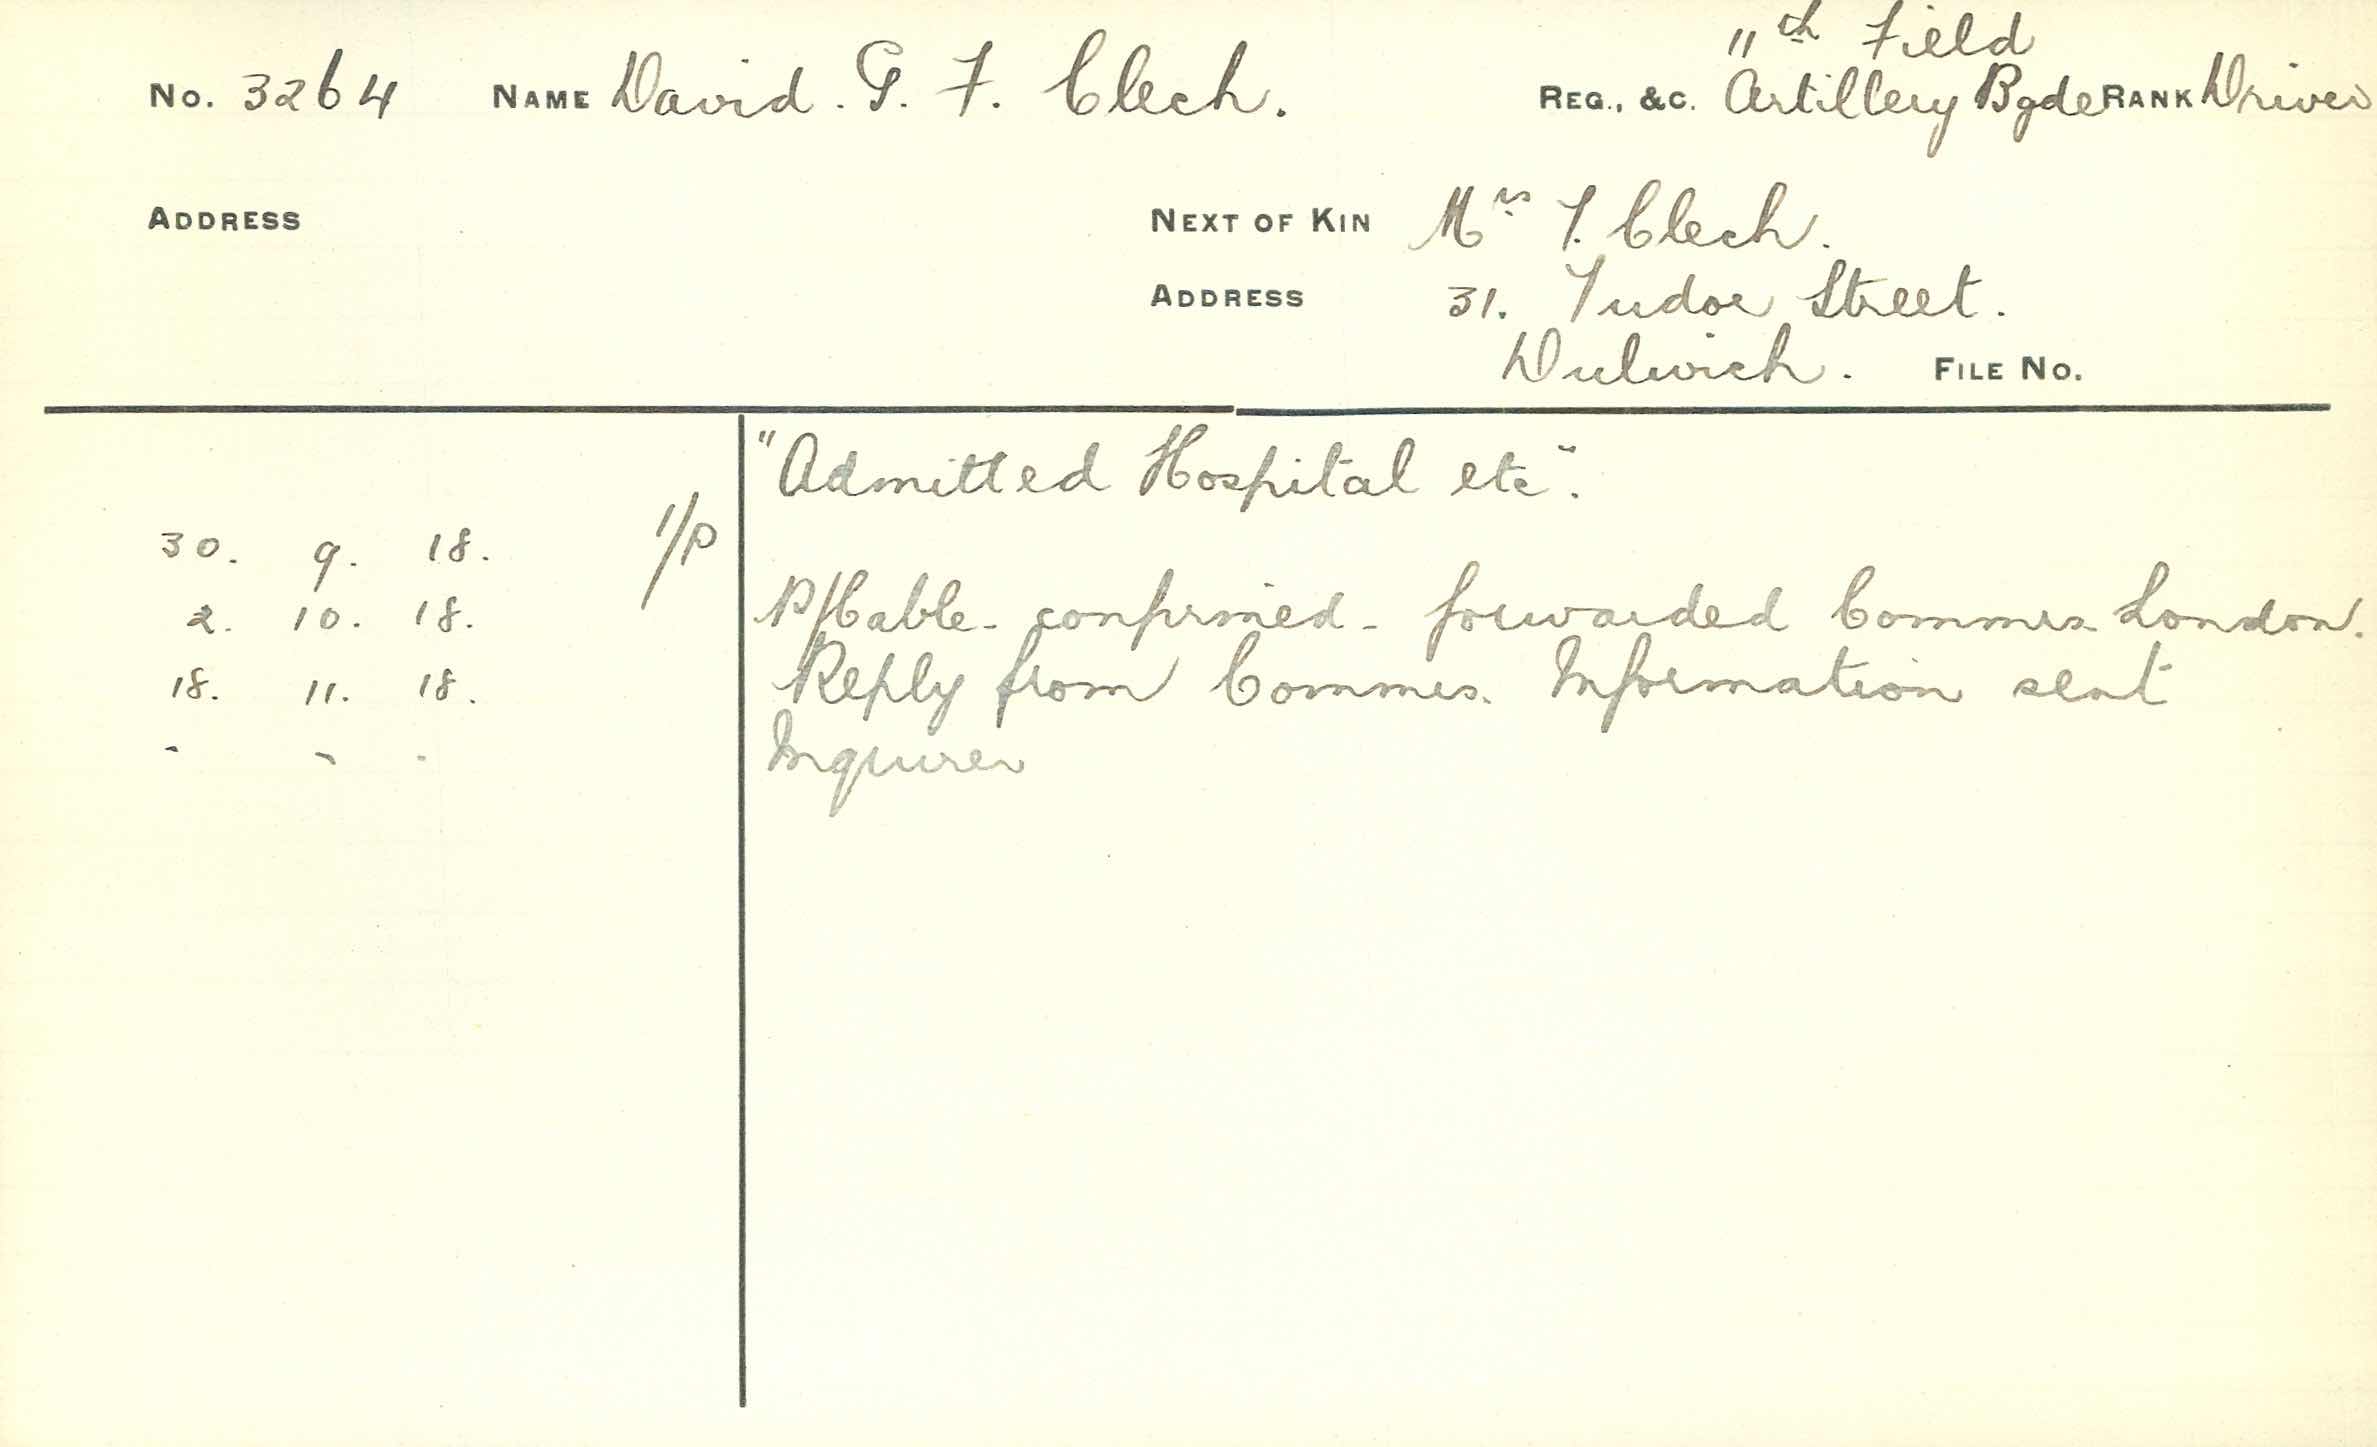 11th Field
No. 3264 NAME David. G. F. Clech. REG., &C. Artillery Bgde RANK Driver
ADDRESS NEXT OF KIN Mrs T. Clech.
ADDRESS 31. Tudor Street.
Dulwich. FILE No.
"Admitted Hospital etc".
30. 9. 18. 1/P
2. 10. 18. P/Cable - confirmed - forwarded Commrs London.
18. 11. 18. Reply from Commrs. Information sent
" " " Inquirer